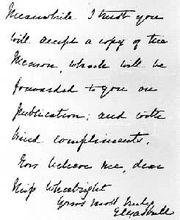 Meanwhile I trust you
will accept a copy of the
Memoir, which will be
forwarded to you on
publication; and with
kind compliments.
Now believe me, dear
Miss Wheelwright
Yours most truly